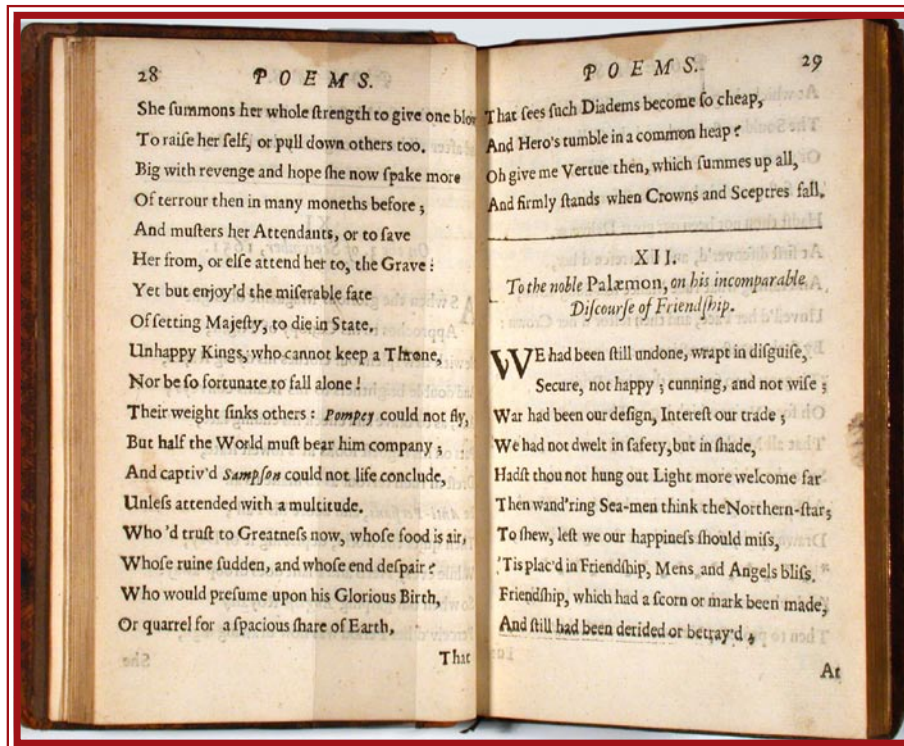 28 POEMS.
She ſummons her whole ſtrength to give one blow
To raiſe her ſelf, or pull down others too.
Big with revenge and hope ſhe now ſpake more
Of terrour then in many moneths before ;
And muſters her Attendants, or to ſave
Her from, or elſe attend her to, the Grave :
Yet but enjoy'd the miſerable fate
Of ſetting Majeſty, to die in State.
Unhappy Kings, who cannot keep a Throne,
Nor be ſo fortunate to fall alone !
Their weight ſinks others : Pompey could not fly,
But half the World muſt bear him company ;
And captiv'd Sampſon could not life conclude,
Unleſs attended with a multitude.
Who 'd truſt to Greatneſs now, whoſe food is air,
Whoſe ruine ſudden, and whoſe end deſpair ?
Who would preſume upon his Glorious Birth,
Or quarrel for a ſpacious ſhare of Earth,
That
POEMS. 29
That ſees ſuch Diadems become ſo cheap,
And Hero's tumble in a common heap ?
Oh give me Vertue then, which ſummes up all,
And firmly ſtands when Crowns and Sceptres fall.
XII.
To the noble Palæmon, on his incomparable
Diſcourſe of Friendſhip.
WE had been ſtill undone, wrapt in diſguiſe,
Secure, not happy ; cunning, and not wiſe ;
War had been our deſign, Intereſt our trade ;
We had not dwelt in ſafety, but in ſhade,
Hadſt thou not hung out Light more welcome far
Then wand'ring Sea-men think the Northern-ſtar;
To ſhew, leſt we our happineſs ſhould miſs,
'Tis plac'd in Friendſhip, Mens and Angels bliſs.
Friendſhip, which had a ſcorn or mark been made,
And ſtill had been derided or betray'd ;
At